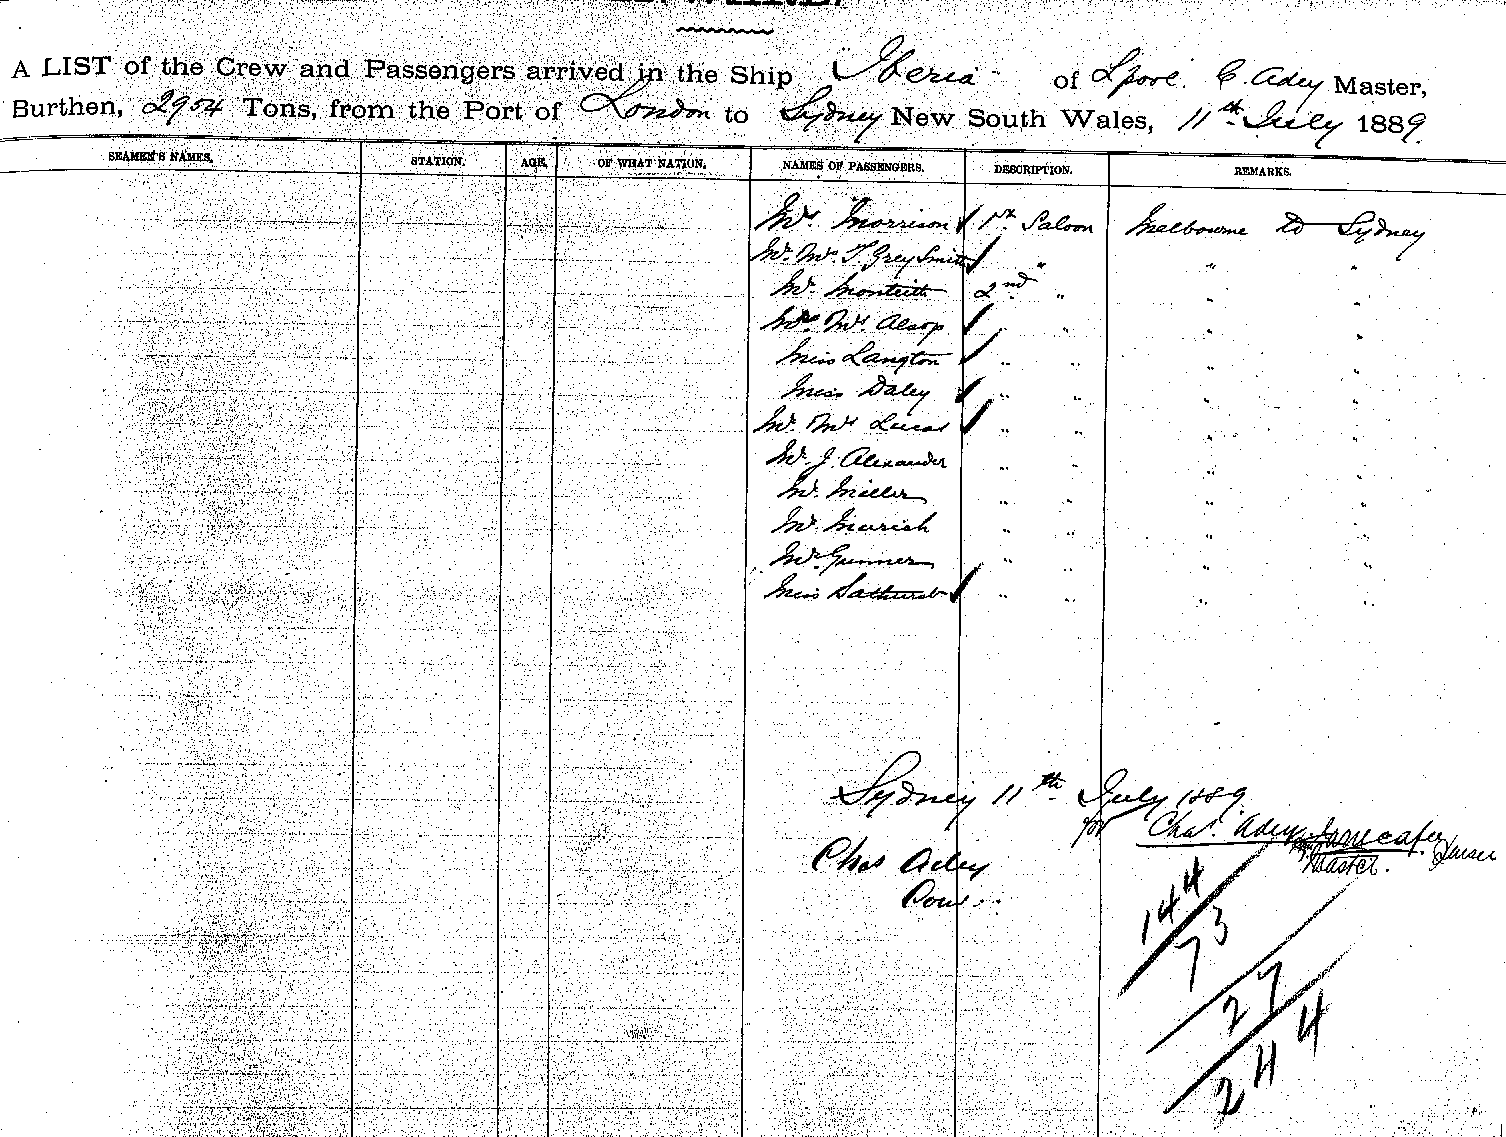 A LIST of the Crew and Passengers arrived in the Ship Iberia of Lpool. C. Adey Master,
Burthen, 2954 Tons, from the Port of London to Sydney New South Wales, 11th July 1889.
SEAMEN'S NAMES. STATION. AGE. OF WHAT NATION. NAMES OF PASSENGERS. DESCRIPTION. REMARKS.
Mrs Morrison 1st Saloon Melbourne to Sydney
Mr. Mrs T. Grey Smith " " "
Mr. Monteith 2nd " " "
Mr. Mrs Alsop " " " "
Miss Langton " " " "
Miss Daley " " " "
Mr. Mrs Lucas " " " "
Mr. J. Alexander " " " "
Mr. Miller " " " "
Mr. " " " "
Mr. Gunner " " " "
Miss Bathurst " " " "
Sydney 11th July 1889.
for Chas. Adey
Master.
Chas Adey
144
73
27
244